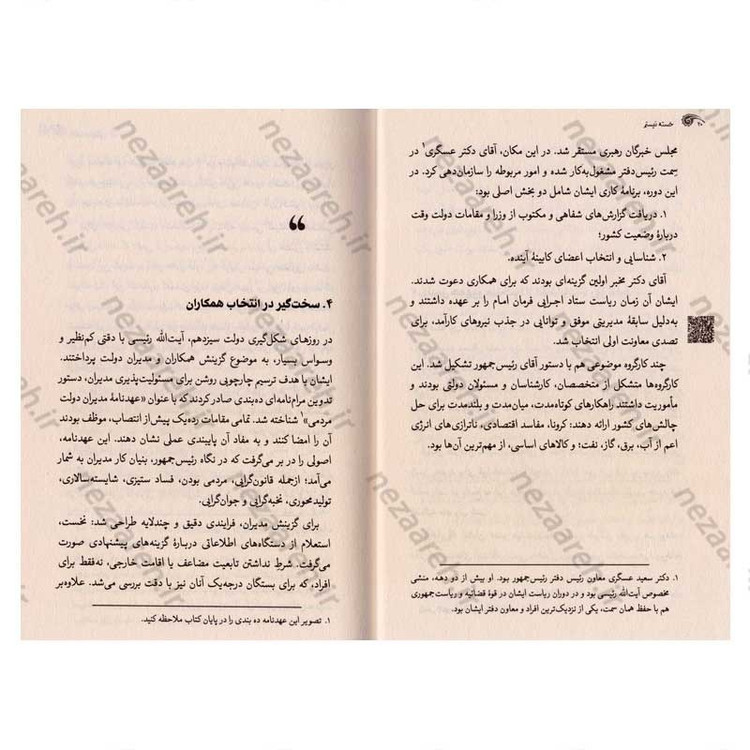 ۲۰ خسته نیستم
مجلس خبرگان رهبری مستقر شد. در این مکان، آقای دکتر عسگری۱ در
سِمت رئیس‌دفتر مشغول‌به‌کار شده و امور مربوطه را سازمان‌دهی کرد. در
این دوره، برنامهٔ کاری ایشان شامل دو بخش اصلی بود:
۱. دریافت گزارش‌های شفاهی و مکتوب از وزرا و مقامات دولت وقت
دربارهٔ وضعیت کشور؛
۲. شناسایی و انتخاب اعضای کابینهٔ آینده.
آقای دکتر مخبر اولین گزینه‌ای بودند که برای همکاری دعوت شدند.
ایشان آن زمان ریاست ستاد اجرایی فرمان امام را بر عهده داشتند و
به‌دلیل سابقهٔ مدیریتی موفق و توانایی در جذب نیروهای کارآمد، برای
تصدی معاونت اولی انتخاب شد.
چند کارگروه موضوعی هم با دستور آقای رئیس‌جمهور تشکیل شد. این
کارگروه‌ها متشکل از متخصصان، کارشناسان و مسئولان دولتی بودند و
مأموریت داشتند راهکارهای کوتاه‌مدت، میان‌مدت و بلندمدت برای حل
چالش‌های کشور ارائه دهند: کرونا، مفاسد اقتصادی، ناترازی‌های انرژی
اعم از آب، برق، گاز، نفت؛ و کالاهای اساسی، از مهم‌ترین آن‌ها بود.
۱. دکتر سعید عسگری معاون رئیس دفتر رئیس‌جمهور بود. او بیش از دو دهه، منشی
مخصوص آیت‌الله رئیسی بود و در دوران ریاست ایشان در قوهٔ قضائیه و ریاست‌جمهوری
هم با حفظ همان سمت، یکی از نزدیک‌ترین افراد و معاون دفتر ایشان بود.
❝
۴. سخت‌گیر در انتخاب همکاران
در روزهای شکل‌گیری دولت سیزدهم، آیت‌الله رئیسی با دقتی کم‌نظیر و
وسواس بسیار، به موضوع گزینش همکاران و مدیران دولت پرداختند.
ایشان با هدف ترسیم چارچوبی روشن برای مسئولیت‌پذیری مدیران، دستور
تدوین مرام‌نامه‌ای ده‌بندی صادر کردند که با عنوان «عهدنامهٔ مدیران دولت
مردمی»۱ شناخته شد. تمامی مقامات رده‌یک پیش از انتصاب، موظف بودند
آن را امضا کنند و به مفاد آن پایبندی عملی نشان دهند. این عهدنامه،
اصولی را در بر می‌گرفت که در نگاه رئیس‌جمهور، بنیان کار مدیران به شمار
می‌آمد؛ ازجمله قانون‌گرایی، مردمی بودن، فساد ستیزی، شایسته‌سالاری،
تولیدمحوری، نخبه‌گرایی و جوان‌گرایی.
برای گزینش مدیران، فرایندی دقیق و چندلایه طراحی شد: نخست،
استعلام از دستگاه‌های اطلاعاتی دربارهٔ گزینه‌های پیشنهادی صورت
می‌گرفت. شرطِ نداشتن تابعیت مضاعف یا اقامت خارجی، نه‌فقط برای
افراد، که برای بستگان درجه‌یک آنان نیز با دقت بررسی می‌شد. علاوه‌بر
۱. تصویر این عهدنامه ده بندی را در پایان کتاب ملاحظه کنید.
nezaareh.ir
nezaareh.ir
nezaareh.ir
nezaareh.ir
nezaareh.ir
nezaareh.ir
nezaareh.ir
nezaareh.ir
nezaareh.ir